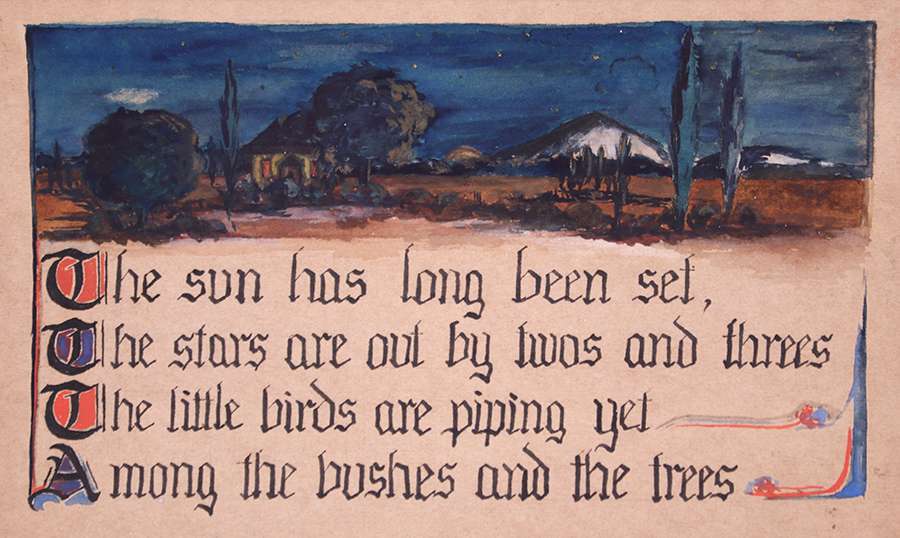 The sun has long been set,
The stars are out by twos and threes
The little birds are piping yet
Among the bushes and the trees